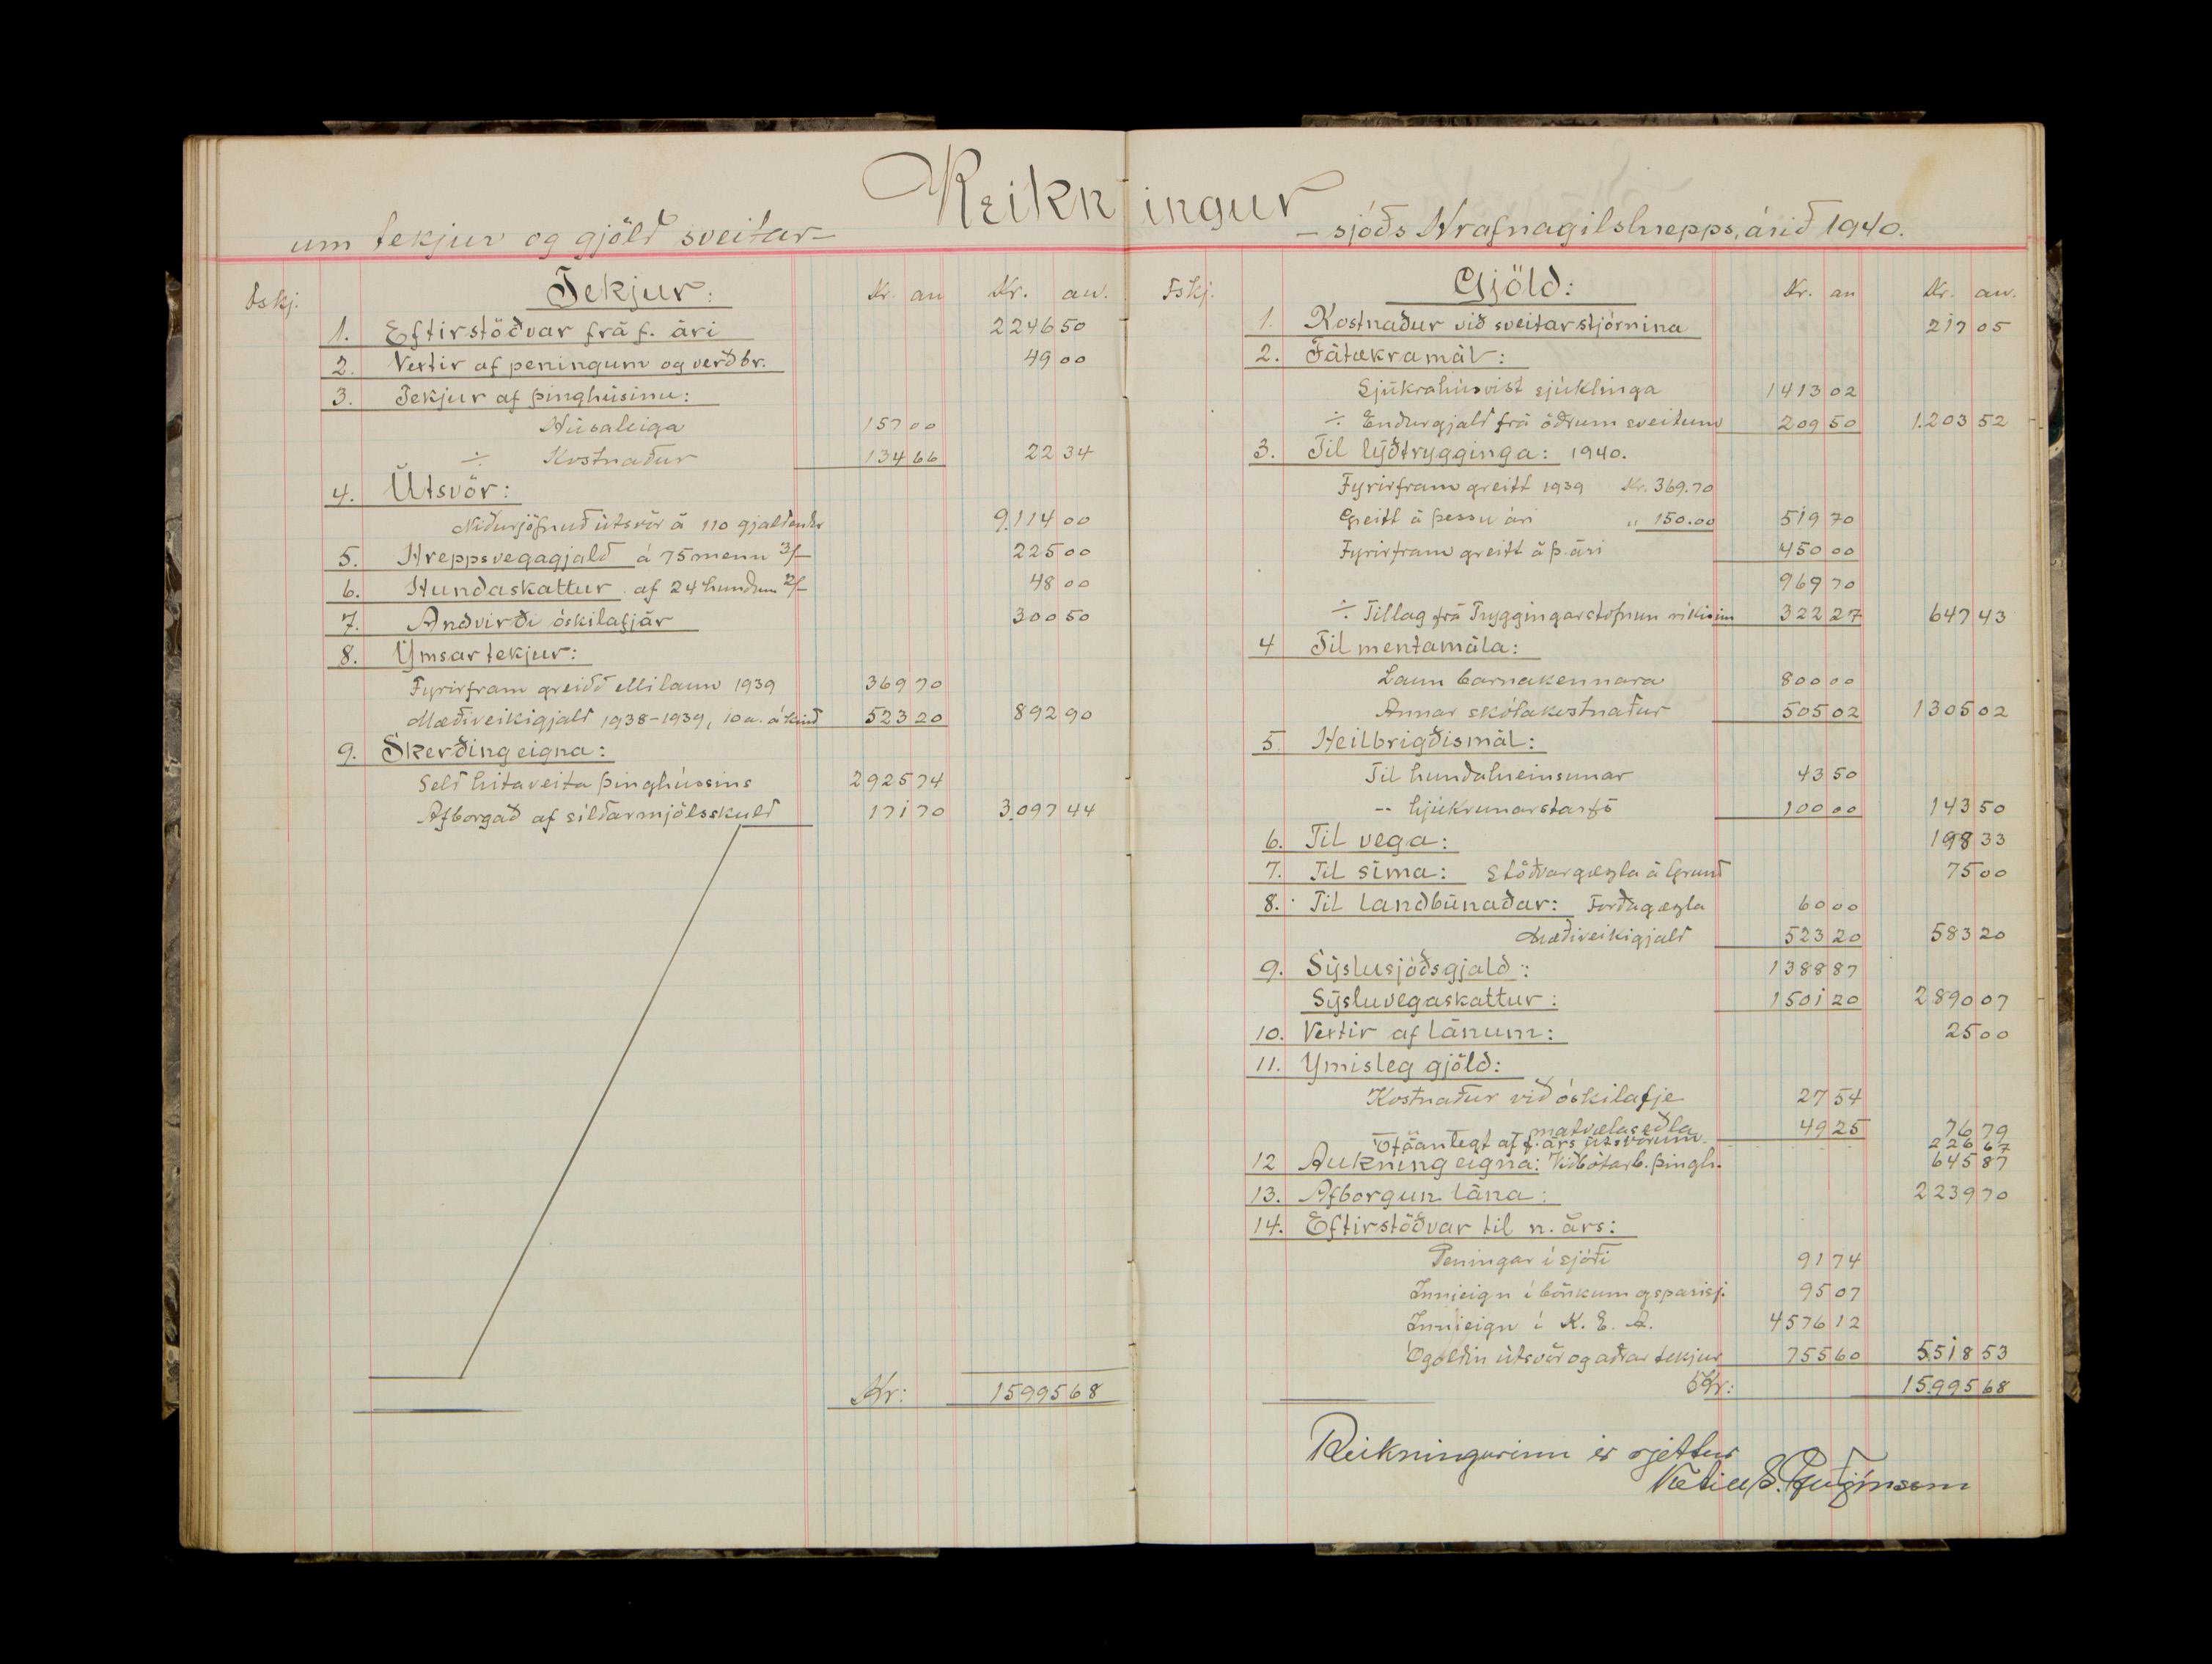 Reikningur
um tekjur og gjöld sveitar-
- sjóðs Hrafnagilshrepps, árið 1940.
Fskj. Tekjur: Kr. au Kr. au.
1. Eftirstöðvar frá f. ári 2246 50
2. Vextir af peningum og verðbr. 49 00
3. Tekjur af þinghúsinu:
Húsaleiga 157 00
÷ Kostnaður 134 66 22 34
4. Útsvör:
Niðurjöfnuð útsvör á 110 gjaldendr 9.114 00
5. Hreppsvegagjald á 75 menn 3/- 225 00
6. Hundaskattur af 24 hundum 2/- 48 00
7. Andvirði óskilafjár 300 50
8. Ýmsar tekjur:
Fyrirfram greidd ellilaun 1939 369 70
Mæðiveikigjald 1938-1939, 10 a. á kind 523 20 892 90
9. Skerðing eigna:
Seld hitaveita þinghússins 2925 74
Afborgað af síldarmjölsskuld 171 70 3.097 44
Kr: 15995 68
Fskj. Gjöld: Kr. au Kr. au.
1. Kostnaður við sveitarstjórnina 217 05
2. Fátækramál:
Sjúkrahúsvist sjúklinga 1413 02
÷ Endurgjald frá öðrum sveitum 209 50 1.203 52
3. Til lýðtrygginga: 1940.
Fyrirfram greitt 1939 Kr. 369.70
Greitt á þessu ári " 150.00 519 70
Fyrirfram greitt á þ. ári 450 00
969 70
÷ Tillag frá Tryggingarstofnun ríkisins 322 27 647 43
4 Til mentamála:
Laun barnakennara 800 00
Annar skólakostnaður 505 02 1305 02
5 Heilbrigðismál:
Til hundahreinsunar 43 50
-- hjúkrunarstarfs 100 00 143 50
6. Til vega: 198 33
7. Til síma: Stöðvargæzla á Grund 75 00
8. Til landbúnaðar: Forðagæzla 60 00
Mæðiveikigjald 523 20 583 20
9. Sýslusjóðsgjald: 1388 87
Sýsluvegaskattur: 1501 20 2890 07
10. Vextir af lánum: 25 00
11. Ýmisleg gjöld:
Kostnaður við óskilafje 27 54
matvælaseðla 49 25 76 79
Ófáanlegt af f. árs útsvörum 226 67
12 Aukning eigna: Viðbótarb. þingh. 645 87
13. Afborgun lána: 2239 70
14. Eftirstöðvar til n. árs:
Peningar í sjóði 91 74
Innieign í bönkum og sparisj. 95 07
Innieign í K. E. A. 4576 12
Ógoldin útsvör og aðrar tekjur 755 60 5518 53
Kr: 15.995 68
Reikningurinn er rjettur
Ketill S. Guðjónsson